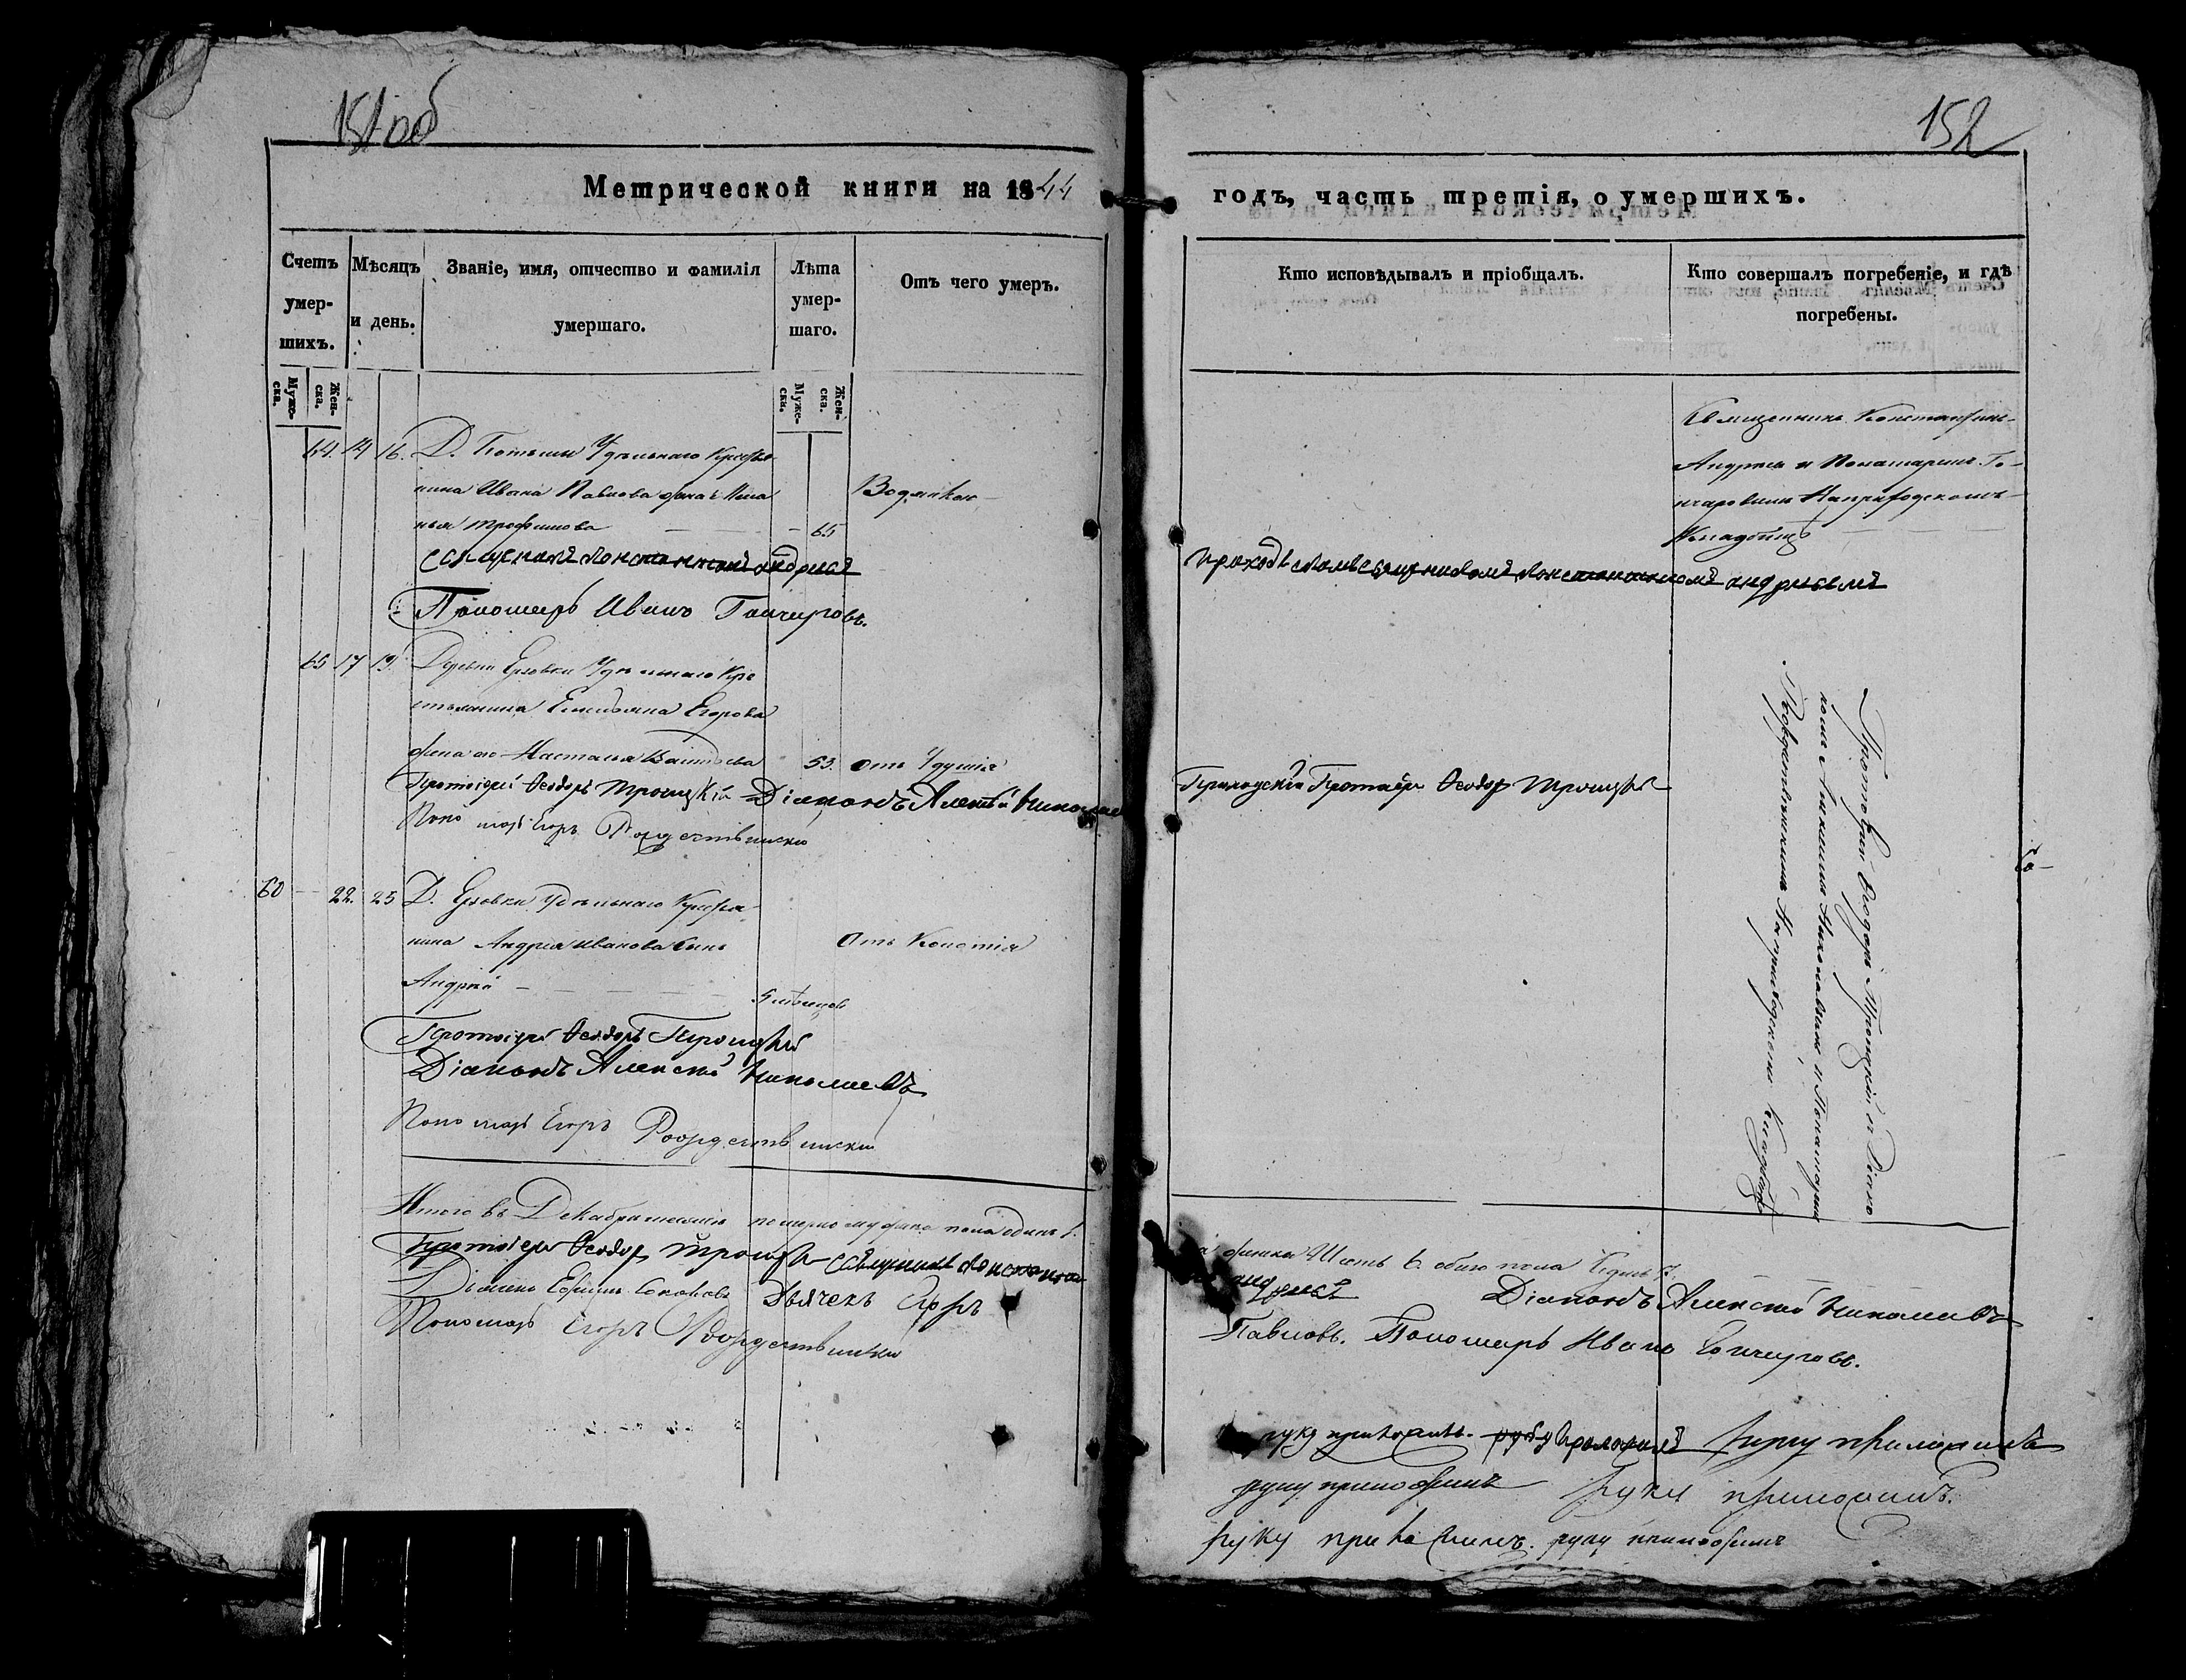 151 об
152
Метрической книги на 1844
годъ, часть третія, о умершихъ.
Счетъ умер-шихъ.
Муже-ска.
Жен-ска.
Мѣсяцъ и день.
Званіе, имя, отчество и фамилія умершаго.
Лѣта умер-шаго.
Муже-ска.
Жен-ска.
Отъ чего умеръ.
Кто исповѣдывалъ и пріобщалъ.
Кто совершалъ погребеніе, и гдѣ погребены.
64. 14 16. Д. Удѣльнаго Крестья-
нина Ивана Павлова жена
Трофимова 65
Водянкою
Священникъ Константинъ Андреевъ
Пономарь Иванъ Гончаровъ.
Приходскимъ священникомъ Константиномъ Андреевымъ
Священникъ Константинъ
Андреевъ и Пономаремъ Го-
нчаровымъ На приходскомъ
Кладбищѣ
65 17 19. Деревни Удѣльнаго Кре
стьянина Егорова
жена его Настасья 53. Отъ Удушья
Протоіерей Ѳеодоръ Троицкій Діаконъ Алексѣй Николаевъ
Пономарь Егоръ Рождественскій
Приходскій Протоіерей Ѳеодор Троицкій
Протоіерей Ѳеодоръ Троицкій и Діако
номъ Алексѣемъ Николаевымъ и Пономаремъ
Рождественскимъ На приходскомъ Кладбищѣ
60 — 22. 25 Д. Удѣльнаго Крестья-
нина Андрея Иванова Сынъ
Андрей 5 мѣсяцовъ
Отъ
60 —
Протоіерей Ѳеодоръ Троицкій
Діаконъ Алексѣй Николаевъ
Пономарь Егоръ Рождественскій
Итого въ Декабрѣ месяцѣ померло мужска пола одинъ 1.
женска Шесть 6. обоего пола Седмь 7.
Протоіерей Ѳеодор Троицкій Священникъ Константинъ
Андреевъ Діаконъ Алексѣй Николаевъ
Діаконъ Ефимъ Соколовъ Дьячекъ Егоръ
Павловъ. Пономарь Иванъ Гончаровъ.
Пономарь Егоръ Рождественскій
руку приложилъ. руку приложилъ руку приложилъ
руку приложилъ руку приложилъ.
руку приложилъ. руку приложилъ